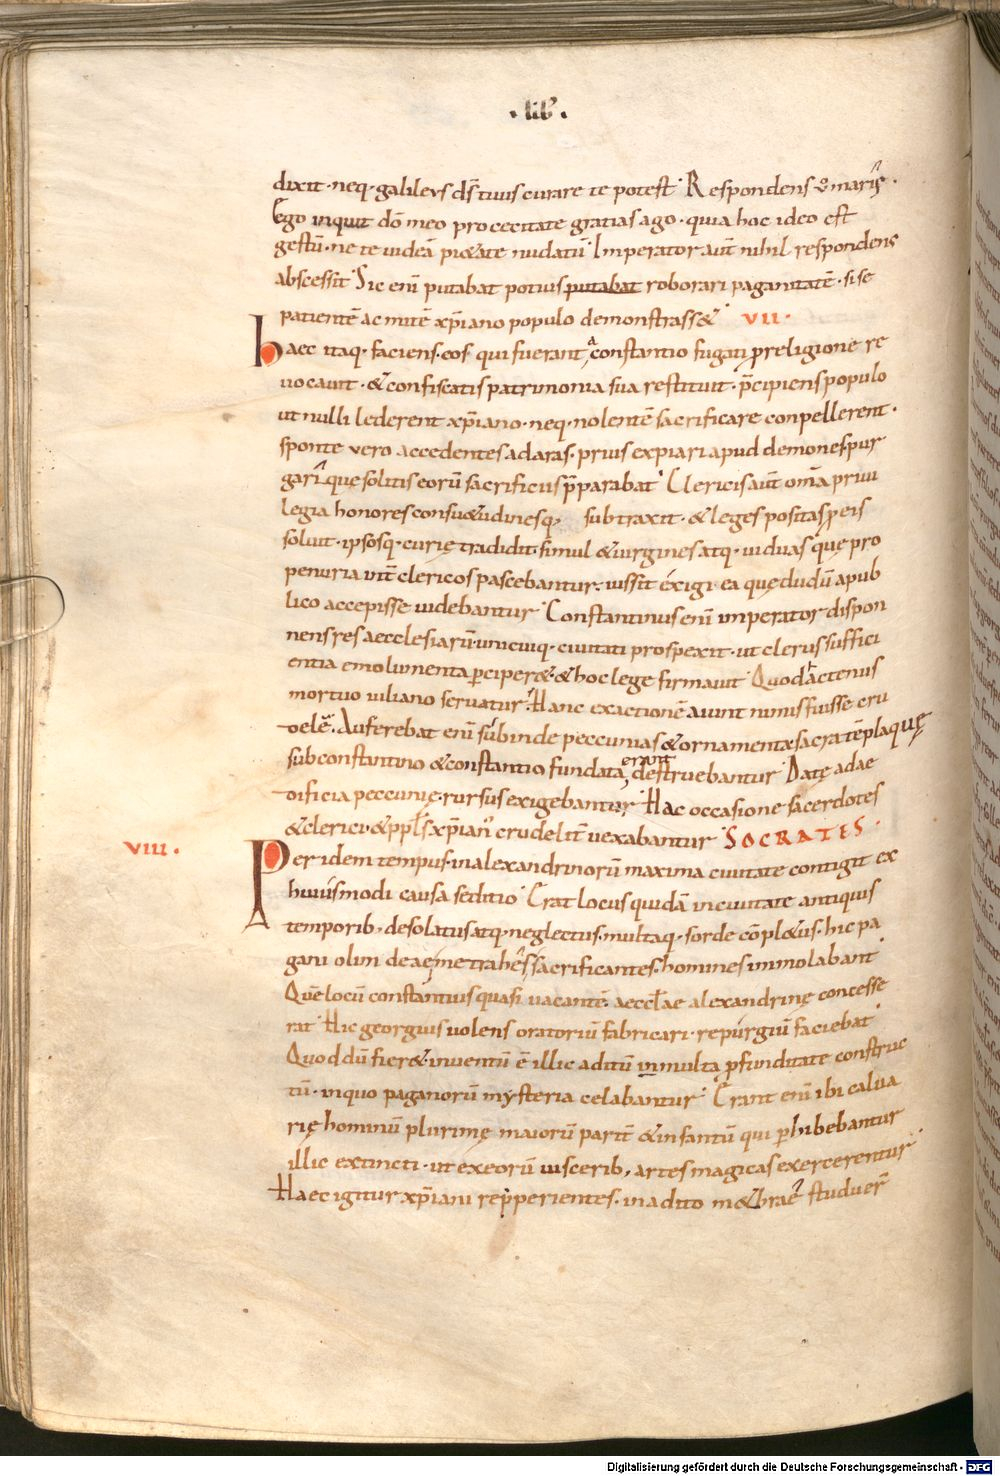 · lib ·
dixit · neq · galileus ds̄ tuus curare te potest · Respondens v̊ maris ·
Ego inquit dō meo pro cecitate gratias ago · quia hoc ideo est
gestū · ne te videā pi&ate nudatū · Imperator aut̄ nihil respondens
abscessit · Sic eni putabat potuis putabat roborari paganitatē · si se
patientē ac mitē xp̄iano populo demonstrass& VII ·
haec itaq · faciens · eos qui fuerant a constantio fugati p religione re
vocavit · & confiscatis patrimonia sua restituit · p̄cipiens populo
ut nulli lederent xp̄iano · neq · nolentē sacrificare conpellerent ·
sponte vero accedentes ad aras · prius expiari apud demones pur
gari · quę solitis eorū sacrificiis p̄parabat · Clericis aut̄ om̄a privi
legia honores consu&udinesq, subtraxit · & leges positas p eis
solvit · ipsosq · curię tradidit · simul & virgines atq · viduas quę pro
penuria int̄ clericos pascebantur · iussit exigi ea quę dudū a pub
lico accepisse videbantur · Constantinus eni imperator dispon
nens res aecclesiarū · unicuiq · civitati prospexit · ut clerus suffici
entia emolumenta p ciper& · & hoc lege firmavit · Quod actenus
mortuo iuliano servatur · Hanc exactionē aiunt nimis fuisse cru
delē · Auferebat eni subinde peccunias & ornamenta sacra tēpla quę
sub constantino & constantio fundata erant, destruebantur · Datę ad ae
dificia peccunię · rursus exigebantur · Hac occasione sacerdotes
& clerici · & ppl̄s xp̄ian' crudelit̄ vexabantur · SOCRATES ·
VIII ·
Per idem tempus · in alexandrinorū maxima civitate contigit ex
huiusmodi causa seditio · Erat locus quidā in civitate antiquis
temporib, desolatus atq · neglectus · multaq · sorde cōpl&us · hic pa
gani olim deae metrahes sacrificantes · homines immolabant ·
Quē locū constantius quasi vacantē · aeccl̄ae alexandrinę concesse
rat · Hic georgius volens oratoriū fabricari · repurgiū faciebat ·
Quod dū fier& · inventū ē illic aditū in multa p funditate constru
tū · in quo paganorū mysteria celabantur · Erant eni ibi calva
rię hominū plurimę maiorū partē & infantū qui p hibebantur
illic extincti · ut ex eorū viscerib, artes magicas exercerentur ·
Haec igitur xp̄iani repperientes · in adito m&brae studuer̄